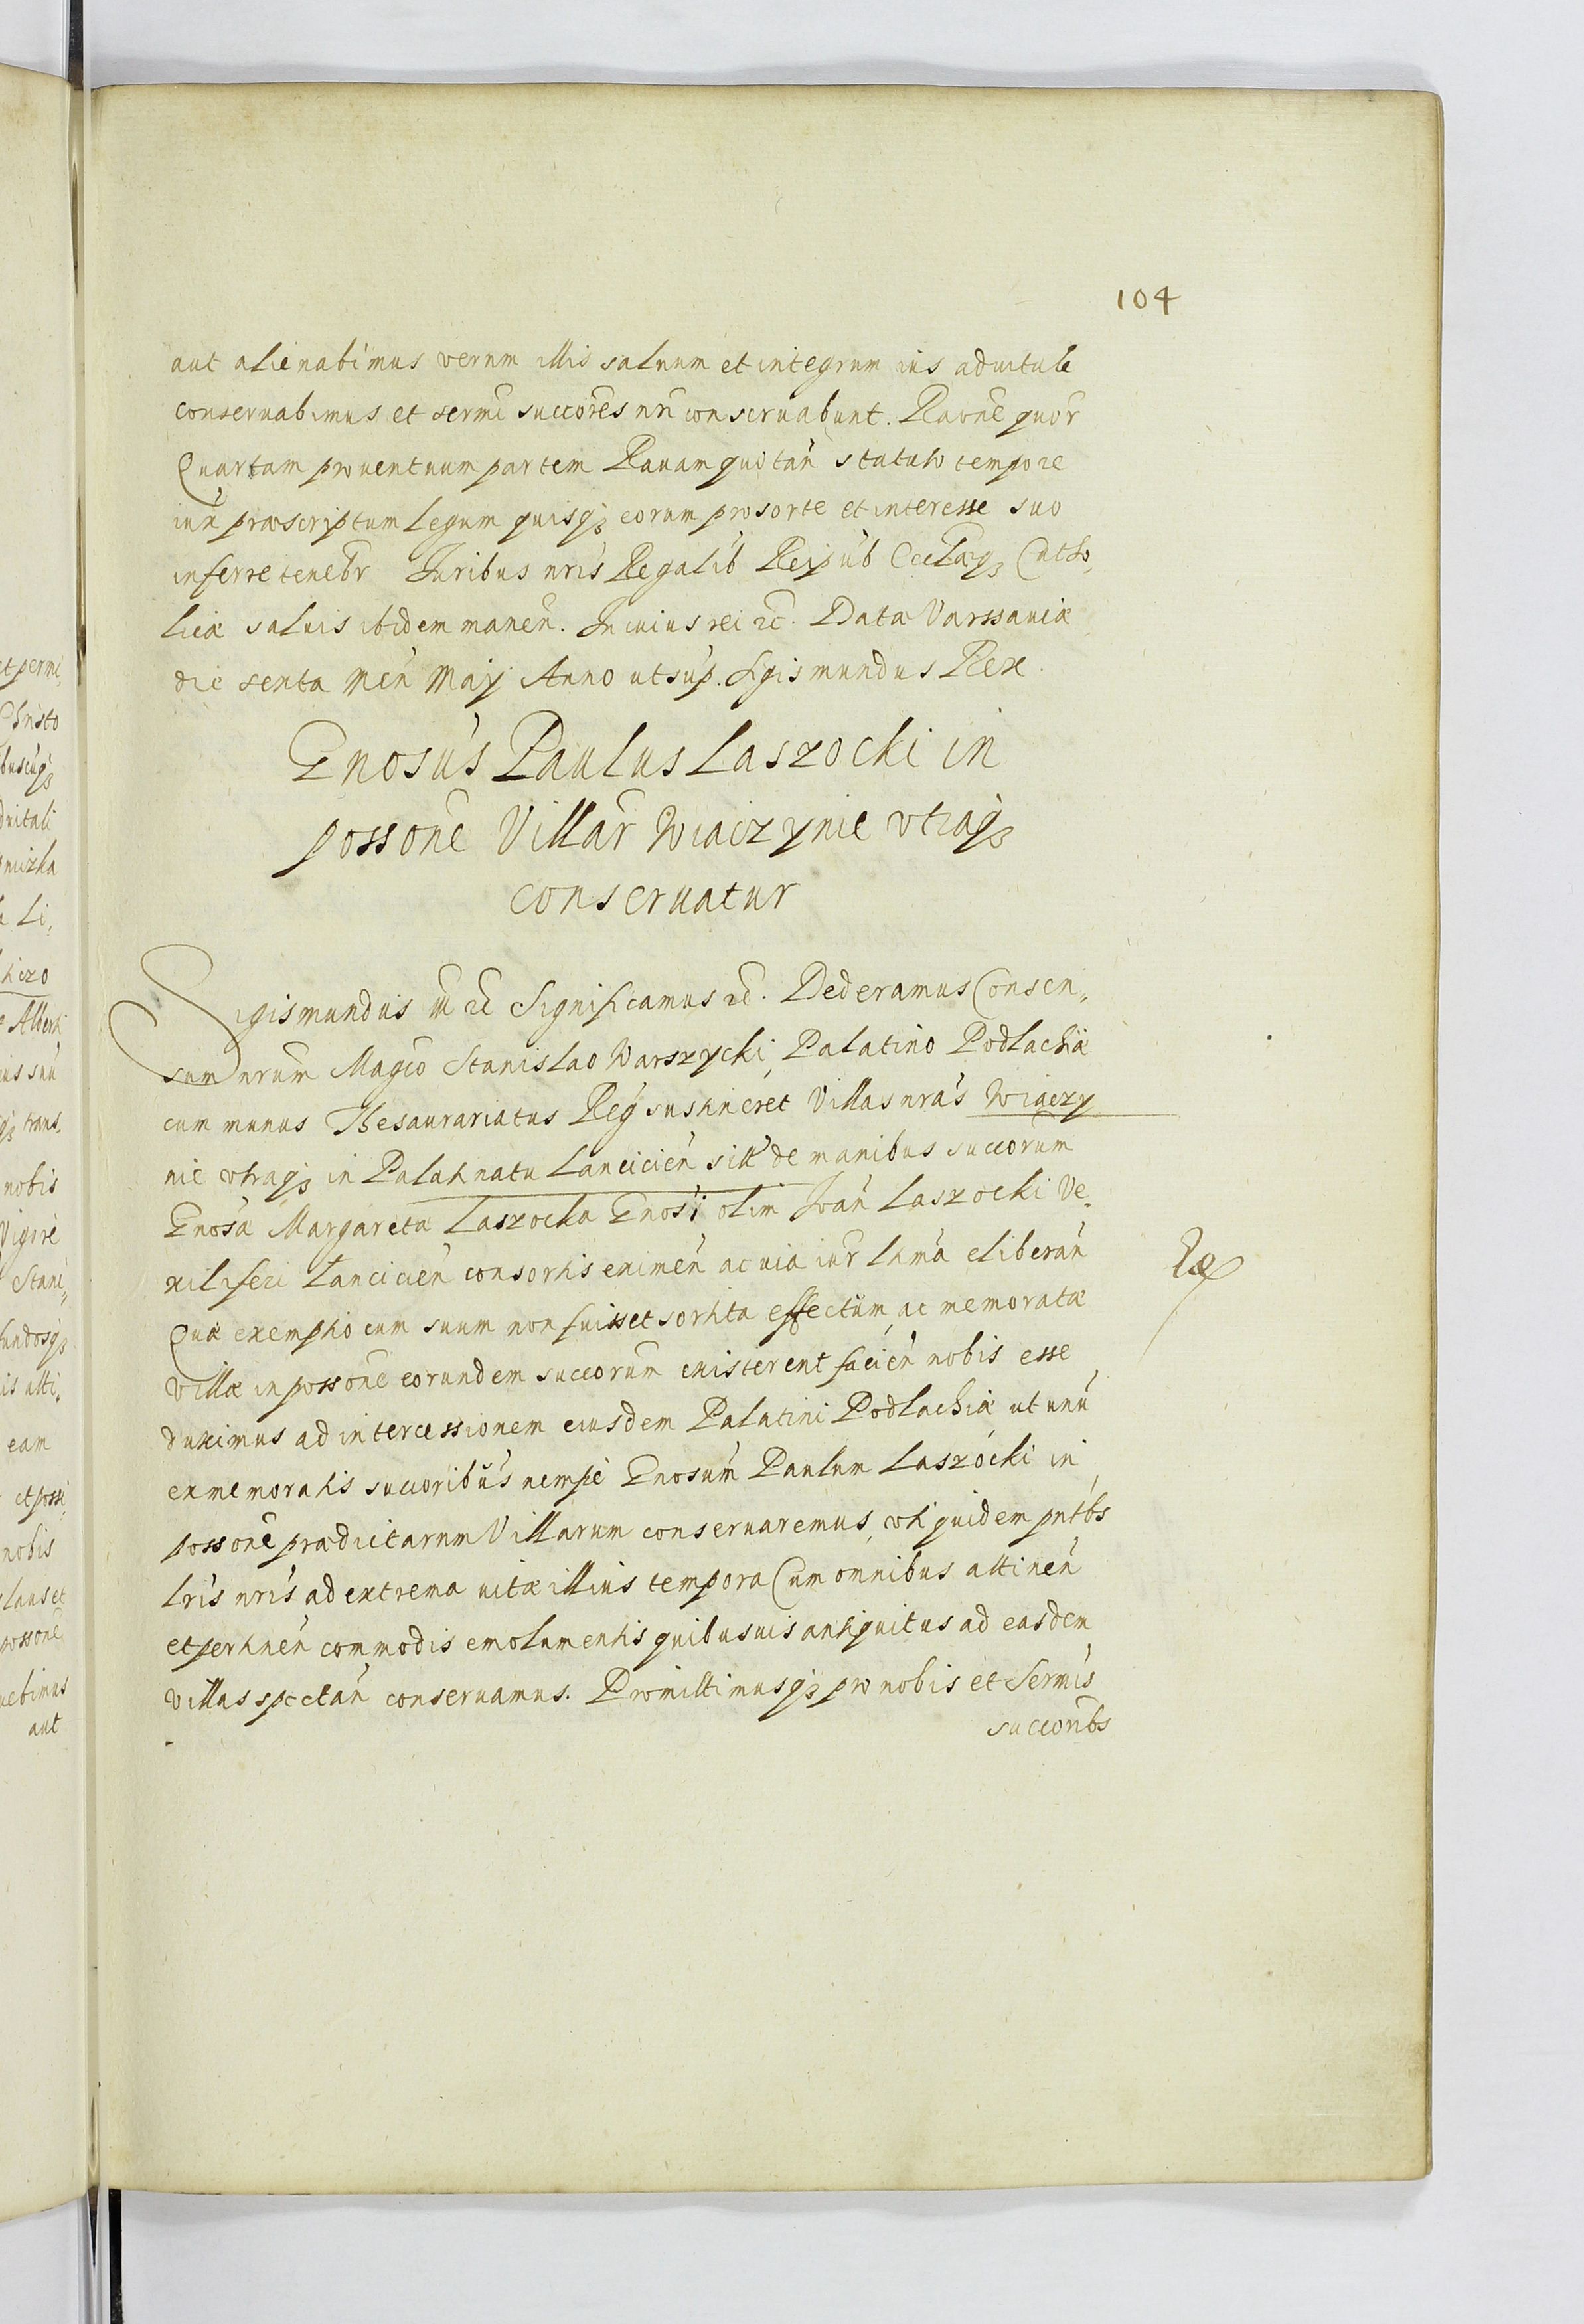 104
aut alienabimus verum illis saluum et integrum ius aduitale
conseruabimus et sermi succores nri conseruabunt. Raone quor
Quartam prouentuum partem Rauam quotan statuto tempore
iux præscriptum legum quisqȝ eorum pro sorte et interesse suo
inferre tenebr Juribus nris Regalib Reipub Ecclæqȝ Catho,
licæ saluis ibidem manen. In cuius rei ꝛc. Data Varssauiæ
die sexta Men Maÿ Anno ut sup. Sigismundus Rex.
Gnosus Paulus Laszocki in
possone Villar Wiaczynie vtraqȝ
conseruatur
Sigismundus III ꝛc Significamus ꝛc. Dederamus Consen,
sum nrum Magco Stanislao Warszycki, Palatino Podlachiæ
cum munus Thesaurariatus Reg sustineret Villas nras Wiaczy
nie vtraqȝ in Palatinatu Lancicien sitt de manibus succorum
Gnosa Margareta Laszocka Gnosi olim Joan Laszocki Ve,
xiliferi Lancicien consortis eximen ac uia iur ltima eliberan
Quæ exemptio cum suum non fuisset sortita effectum, ac memoratæ
villæ in possone eorundem succorum existerent facien nobis esse
duximus ad intercessionem eiusdem Palatini Podlachiæ ut unu
ex memoratis succoribus nempe Gnosum Paulum Laszocki in
possone prædictarum Villarum conseruaremus, vti quidem pntbs
lris nris ad extrema uitæ illius tempora Cum omnibus attinen
et pertinen commodis emolumentis quibusuis antiquitus ad easdem
villas spectan conseruamus. Promittimusqȝ pro nobis et Sermis
succoribs
et permi,
Christo
buscuqȝ
duitali
Li,
Alberti
ius suu
qȝ trans,
nobis
Vigore
Stani,
fundosqȝ
is atti,
eam
et possi,
nobis
laus et
possone
uebimus
aut